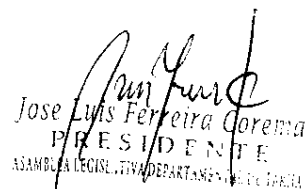 Jose Luis Ferreira Corema
PRESIDENTE
ASAMBLEA LEGISLATIVA DEPARTAMENTAL DE TARIJA